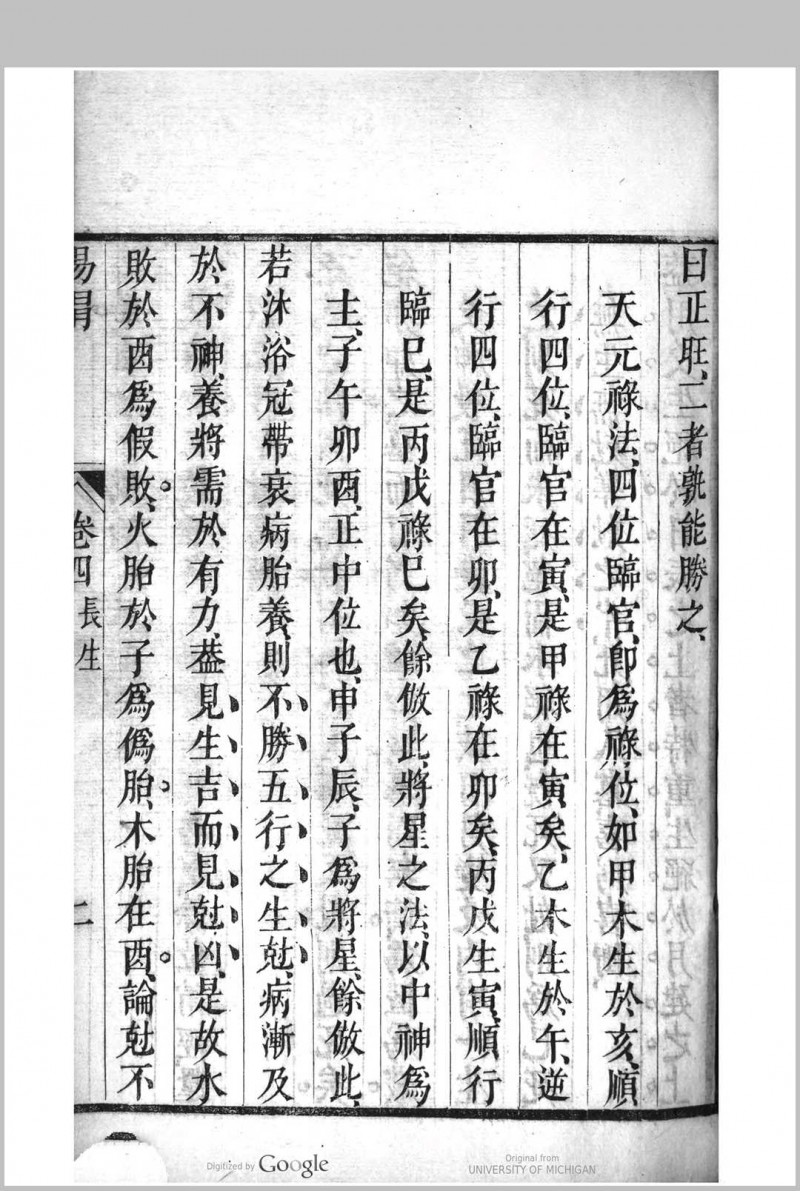 日正旺、二者孰能勝之、
天元祿法、四位臨官、卽爲祿位、如甲木生於亥、順
行四位、臨官在寅、是甲祿在寅矣、乙木生於午、逆
行四位、臨官在卯、是乙祿在卯矣、丙戊生寅、順行
臨巳、是丙戊祿巳矣、餘倣此、將星之法、以中神爲
主、子午卯酉、正中位也、申子辰、子爲將星、餘倣此、
若沐浴冠帶衰病胎養、則不勝五行之生尅、病漸及
於不神、養將需於有力、葢見生吉而見尅凶、是故水
敗於酉爲假敗、火胎於子爲僞胎、木胎在酉、論尅不
易冐
卷四 長生
二
Digitized by Google
Original from
UNIVERSITY OF MICHIGAN